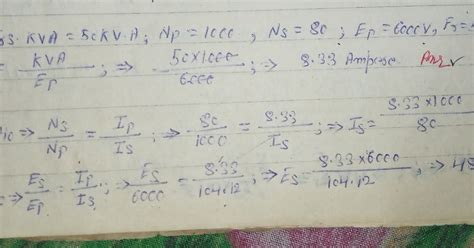 KVA = 50 KV.A; Np = 1000, Ns = 80; Ep = 6000V,
= KVA/Ep ; => 50x1000/6000 ; => 8.33 Ampere Ans
=> Ns/Np = Ip/Is ; => 80/1000 = 8.33/Is ; => Is = 8.33x1000/80
=> Es/Ep = Ip/Is ; => Es/6000 = 8.33/104.12 ; => Es = 8.33x6000/104.12 ; => 48